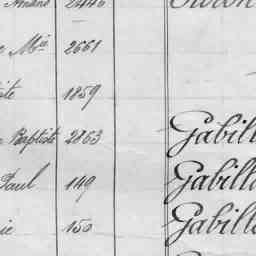 2446
Mie 2661
1859
Baptiste 2863 Gabill
Paul 149 Gabill
150 Gabill